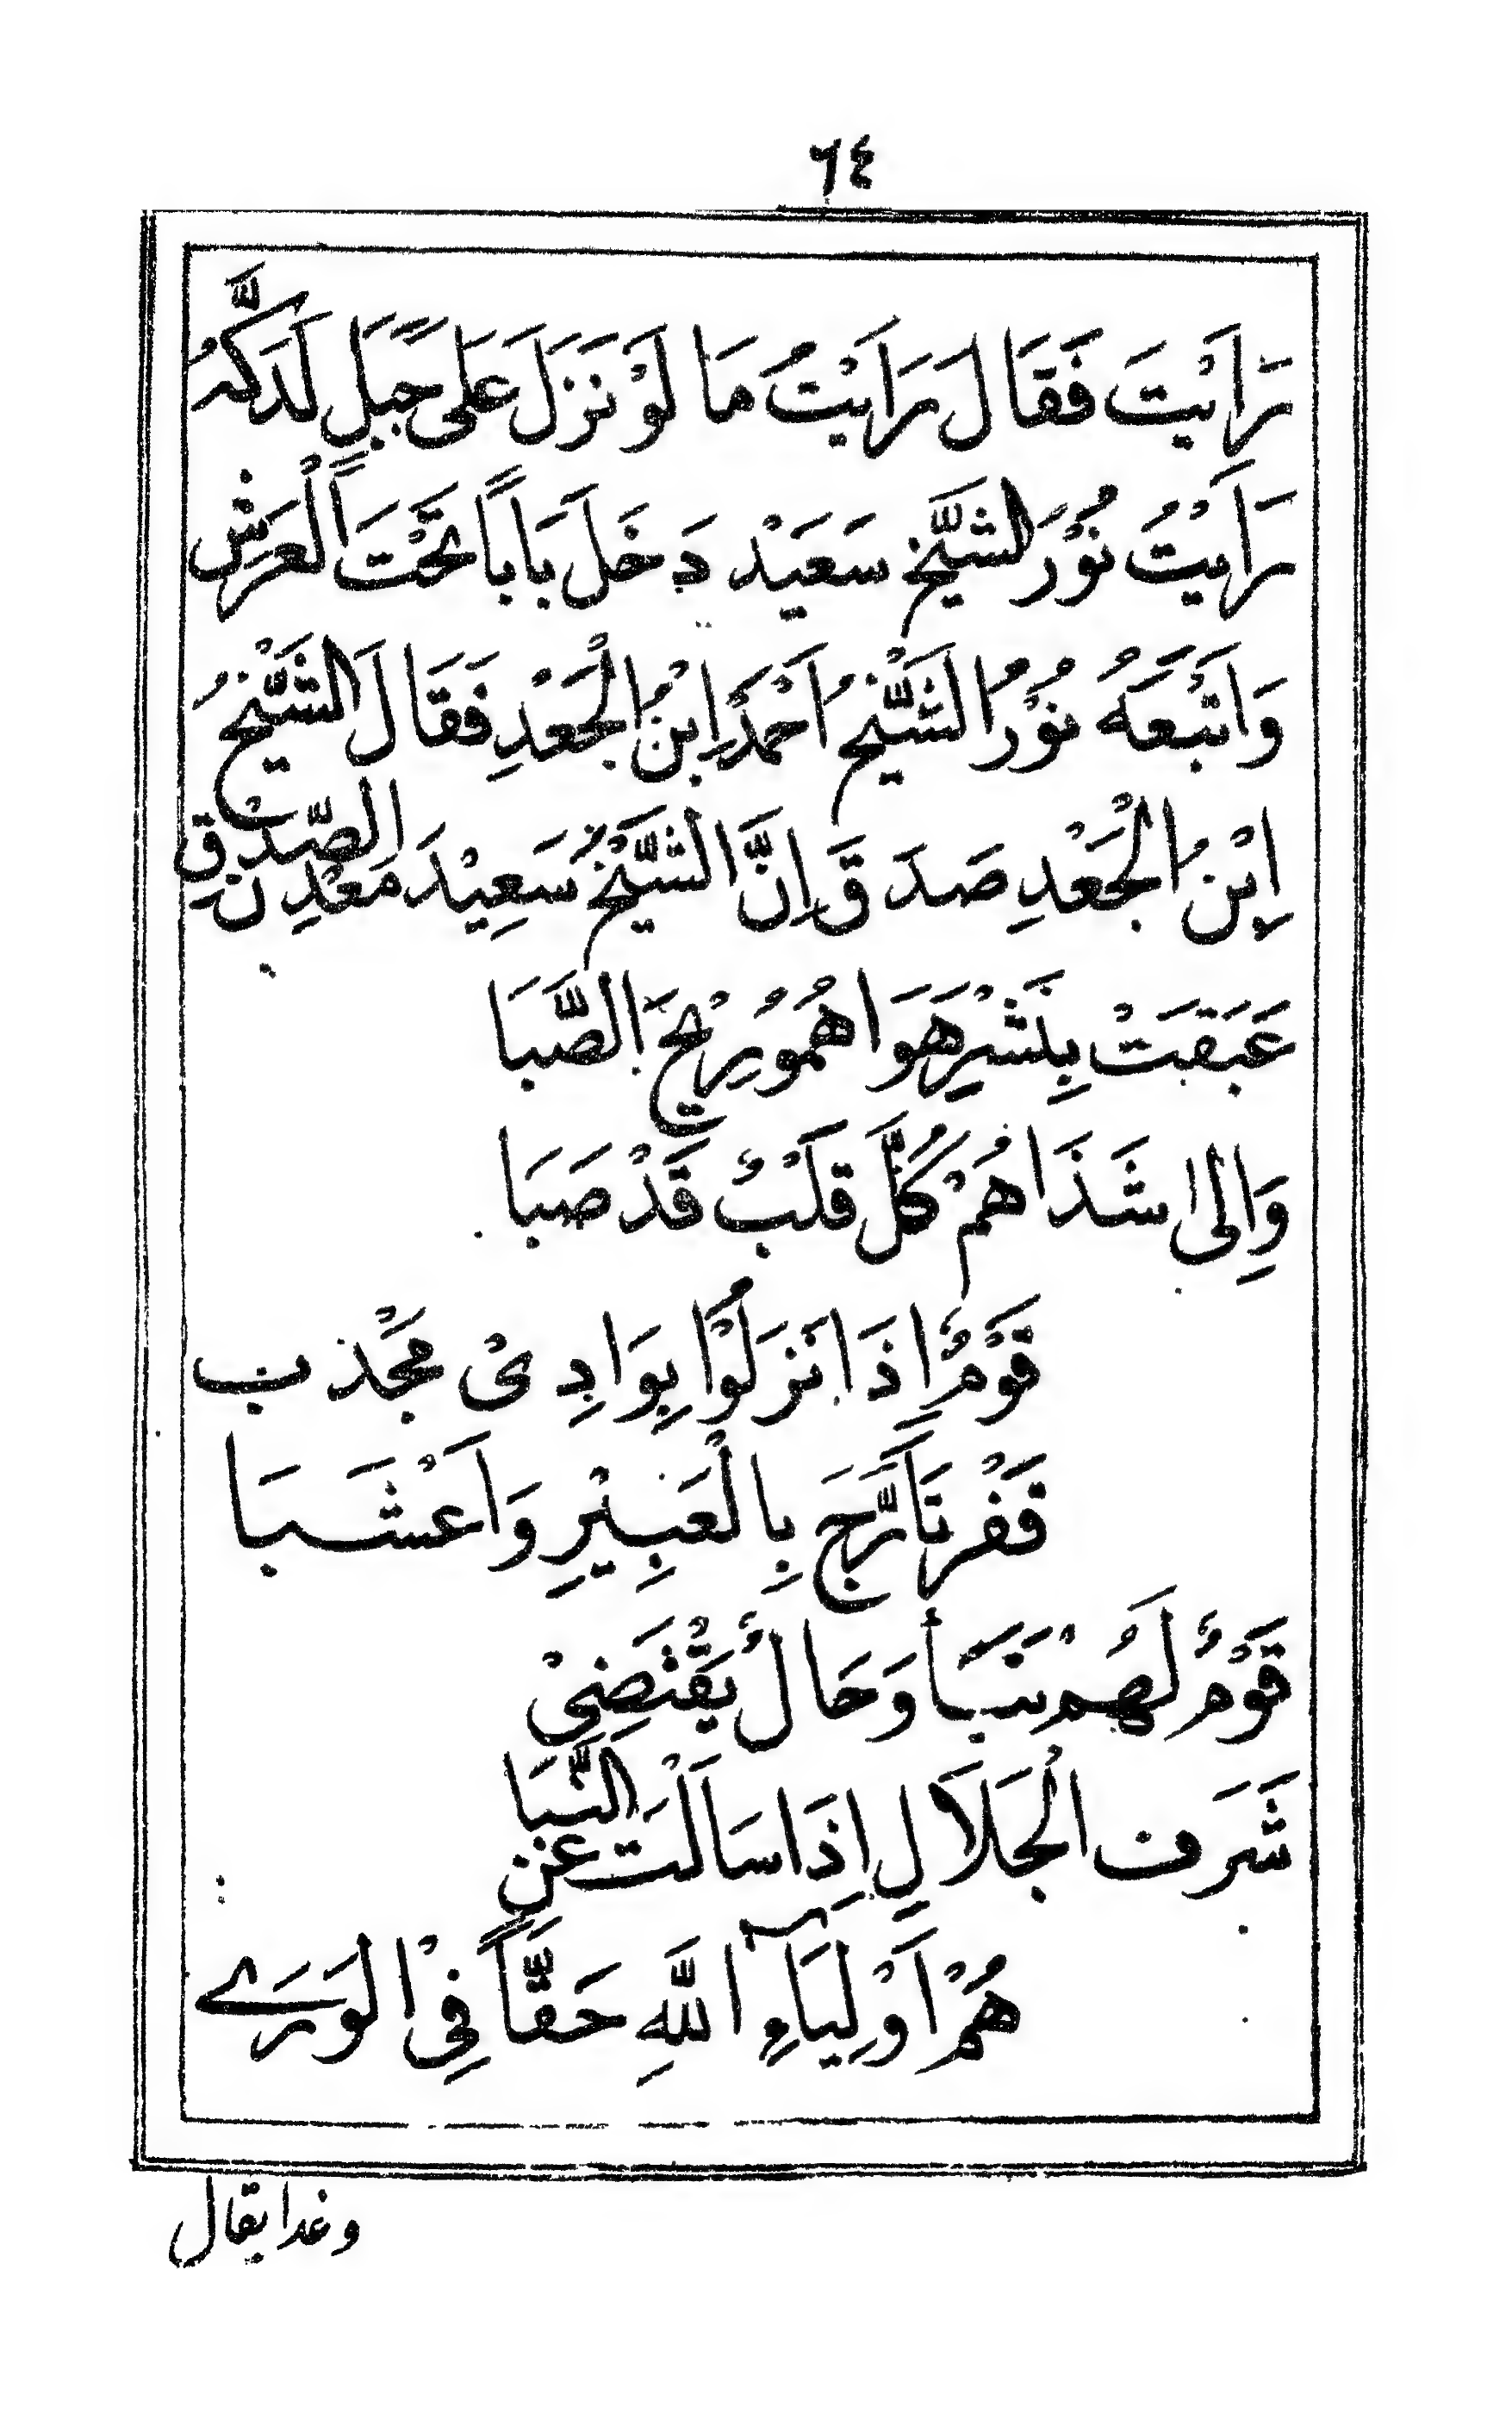 ٦٤
رَاَيْتَ فَقَالَ رَاَيْتُ مَا لَوْ نَزَلَ عَلَى جَبَلٍ لَدَكَّهُ
رَاَيْتُ نُوْرَ الشَّيْخِ سَعَيْد دَخَلَ بَابًا تَحْتَ الْعَرَشِ
وَاتْبَعَهُ نُوْرُ الشَّيْخِ اَحْمَدُ اِبْنُ الْجَعْدِ فَقَالَ الشَّيْخُ
اِبْنُ الْجَعْدِ صَدَقَ اِنَّ الشَّيْخَ سَعِيْدَ مَعْدِنِ الصِّدْقِ
عَبَقَتْ بِنَشْرِ هَوَاهُمُوُ رِيْحَ الصَّبَا
وَاِلىٰ شَذَاهُمْ كُلَّ قَلَبْ قَدْ صَبَا
قَوْمٌ اِذَا نَزَلُوْا بِوَادِىْ مَجْدْبِ
فَفْرٍ تَاَرَّجَ بِالْعَبِيْرِ وَاَعْشَبَا
قَوْمٌ لَهُمْ نَبَأ وَحَالٌ يَقْتَضِىْ
شَرَف الْجَلَالِ اِذَا سَاَلْتَ عَنِ النَّبَا
هُمْ اَوْلِيَآءِ اللَّهِ حَقًّا فِىْ الوَرَے
وغدا يقال